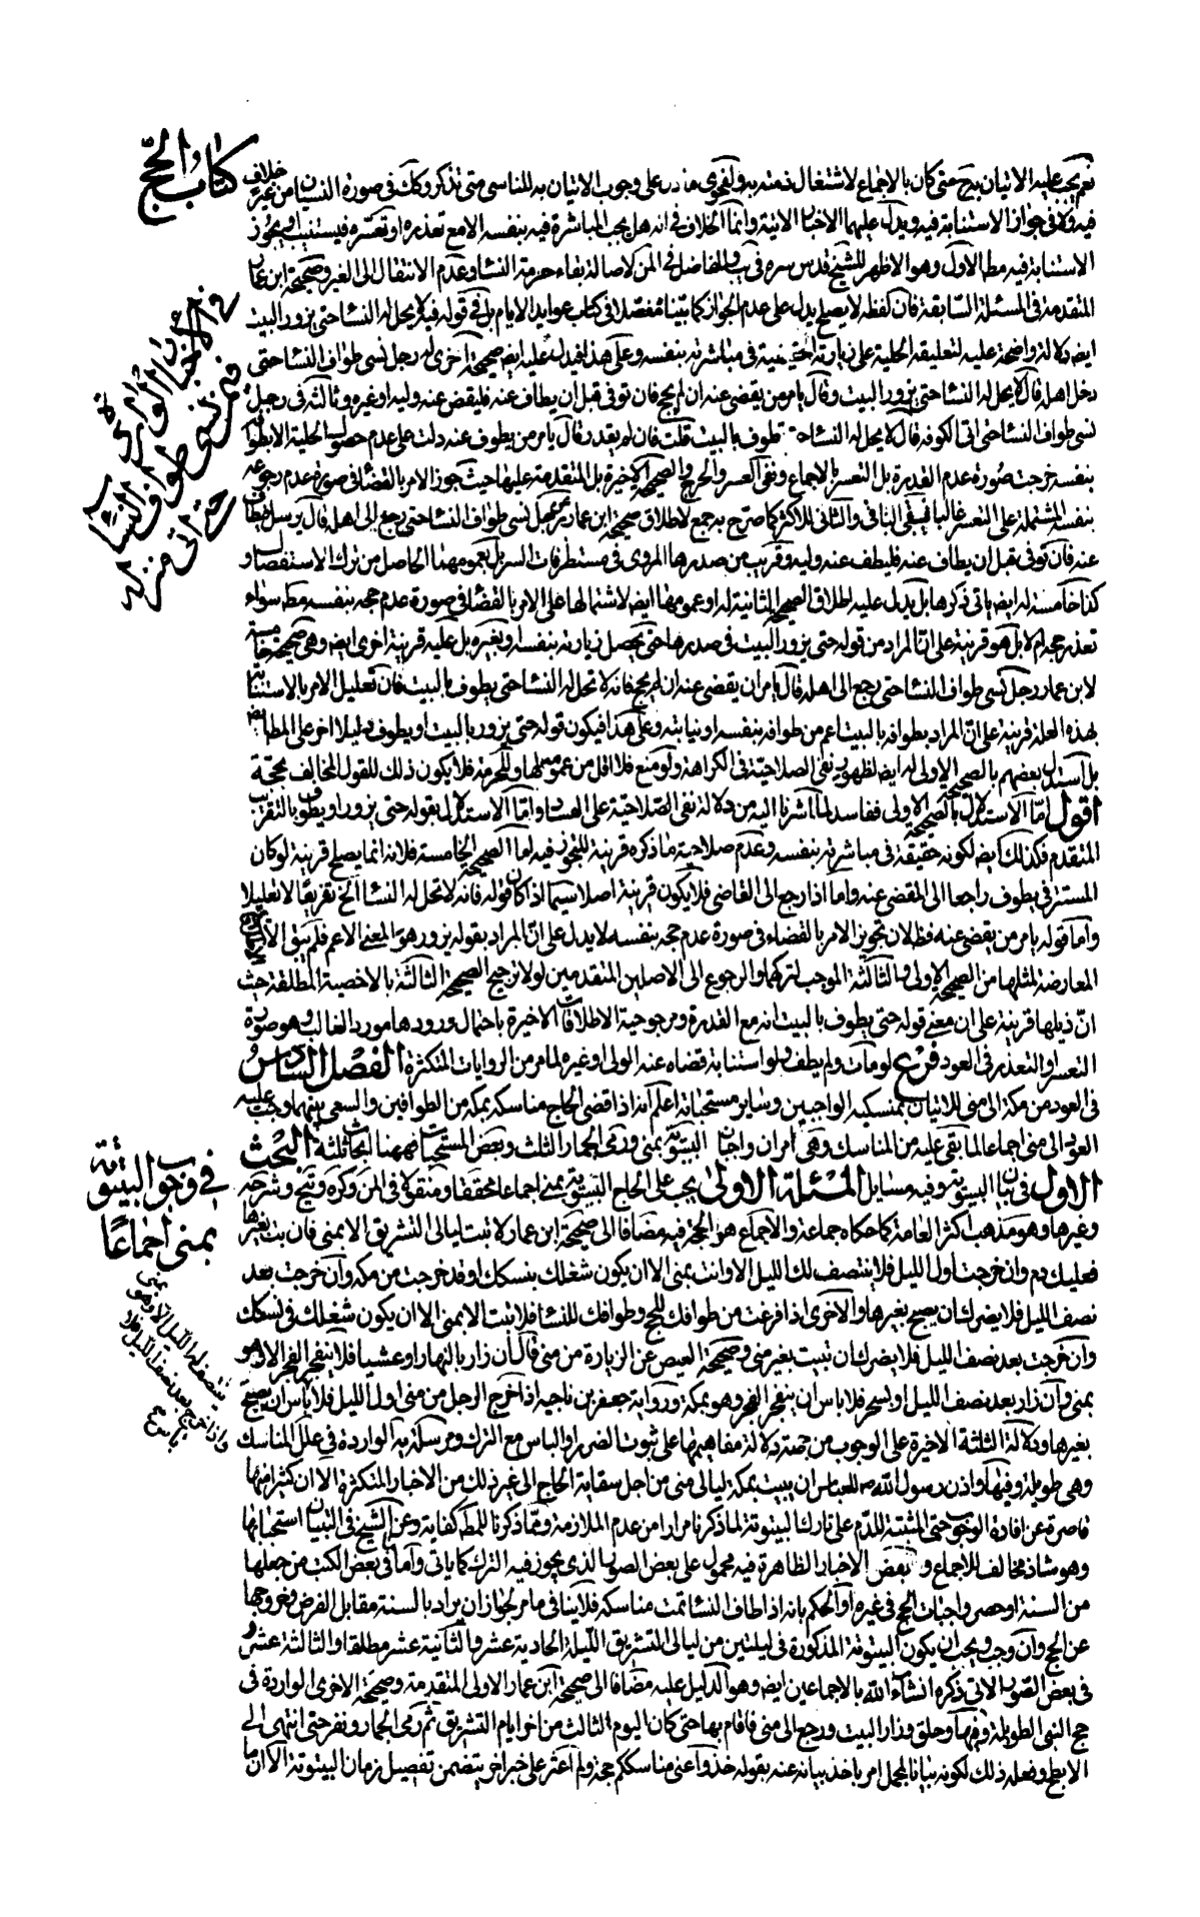 كتاب الحج
نعم يجب عليه الاتيان به متى كان بالاجماع لاشتغال ذمته به ولفحوى ما دل على وجوب الاتيان به للناسي متى تذكر وكك في صورة النسيان من غير خلاف
فيه ولا في جواز الاستنابة فيه ويدل عليهما الاخبار الاتية وانما الخلاف في انه هل يجب المباشرة فيه بنفسه الا مع تعذره او تعسره فيستنيب او يجوز
الاستنابة فيه مط الاول وهو الاظهر للشيخ قدس سره في يب وللفاضل في المن لاصالة بقاء حرمة النساء وعدم الانتقال الى الغير وصحيحة ابن عمار
المتقدمة في المسئلة السابقة فان لفظة لا يصلح يدل على عدم الجواز كما بيناه مفصلا في كتاب عوايد الايام بل في قوله فيه لا يحل له النساء حتى يزور البيت
ايض دلالة واضحة عليه لتعليقه الحلية على زيارته الحقيقية في مباشرته بنفسه وعلى هذا فتدل عليه ايض صحيحة اخرى له رجل نسى طواف النساء حتى
دخل اهله قال لا يحل له النساء حتى يزور البيت وقال يامر من يقضى عنه ان لم يحج فان توفى قبل ان يطاف عنه فليقض عنه وليه او غيره وثالثة في رجل
نسى طواف النساء حتى اتى الكوفة قال لا يحل له النساء حتى يطوف بالبيت قلت فان لم يقدر قال يامر من يطوف عنه دلت على عدم حصول الحلية الا بطوافه
بنفسه خرجت صورة عدم القدرة بل التعسر بالاجماع ونفى العسر والحرج والصحيحة الاخيرة بل المتقدمة عليها حيث جوز الامر بالقضاء في صورة عدم رجوعه
بنفسه المشتملة على التعسر غالبا فيبقى الباقي والثاني للاكثر كما صرح به جمع لاطلاق صحيحة ابن عمار رجل نسى طواف النساء حتى رجع الى اهله قال يرسل فيطاف
عنه فان توفى قبل ان يطاف عنه فليطف عنه وليه وقريب من صدرها المروى في مستطرفات السرائر بعمومهما الحاصل من ترك الاستفصال و
كذا خامسة له ايض ياتى ذكرها بل يدل عليه اطلاق الصحيحة الثانية له او عمومها ايض لاشتمالها على الامر بالقضاء في صورة عدم حجه بنفسه مط سواء
تعذر حجه ام لا بل هو قرينة على ان المراد من قوله حتى يزور البيت في صدرها حتى يحصل زيارته بنفسه او بغيره بل عليه قرينة اخرى ايض وهى صحيحة خامسة
لابن عمار رجل نسى طواف النساء حتى رجع الى اهله قال يامر ان يقضى عنه ان لم يحج فانه لا تحل له النساء حتى يطوف بالبيت فان تعليل الامر بالاستنابة
بهذه العلة قرينة على ان المراد بطوافه بالبيت اعم من طوافه بنفسه او نيابته وعلى هذا فيكون قوله حتى يزور بالبيت او يطوف دليلا اخر على المط ايض
بل استدل بعضهم بالصحيحة الاولى له ايض لظهور نفى الصلاحية في الكراهة ولو منع فلا اقل من عمومها وللحرمة فلا يكون ذلك للقول المخالف بحجة
اقول اما الاستدلال بالصحيحة الاولى ففاسد لما اشرنا اليه من دلالة نفى الصلاحية على الفساد واما الاستدلال بقوله حتى يزور او يطوف بالتقريب
المتقدم فكذلك ايض لكونه حقيقة في مباشرته بنفسه وعدم صلاحية ما ذكره قرينة للتجوز فيه اما الصحيحة الخامسة فلانه انما يصلح قرينة لو كان
المستتر في يطوف راجعا الى المقضى عنه واما اذا رجع الى القاضى فلا يكون قرينة اصلا سيما اذا كان قوله فانه لا تحل له النساء الخ تفريعا لا تعليلا
واما قوله يامر من يقضى عنه فظ لان تجويز الامر بالقضاء في صورة عدم حجه بنفسه لا يدل على ان المراد بقوله يزور هو المعنى الاعم فلم يبق الا
المعارضة لمثلها من الصحيحة الاولى والثالثة الموجب لتركهما والرجوع الى الاصلين المتقدمين لولا ترجيح الصحيحة الثالثة بالاخصية المطلقة حيث
ان ذيلها قرينة على ان معنى قوله حتى يطوف بالبيت انه مع القدرة ومرجوحية الاطلاقات الاخيرة باحتمال ورودها مورد الغالب وهو صورة
التعسر او التعذر في العود فرع لو مات ولم يطف ولو استنابة قضاه عنه الولى او غيره لما مر من الروايات المتكثرة الفصل السادس
في العود من مكة الى منى للاتيان بمنسكيه الواجبين وساير مستحباته اعلم انه اذا قضى الحاج مناسكه بمكة من الطوافين والسعى بينهما وجب عليه
العود الى منى اجماعا لما بقى عليه من المناسك وهى امران واجبان البيتوتة بمنى ورمى الجمار الثلث وبعض المستحبات فههنا ابحاث ثلثة البحث
الاول في بيان البيتوتة وفيه مسايل المسئلة الاولى يجب على الحاج البيتوتة بمنى اجماعا محققا ومنقولا في المن وكره وتنج وشرحه
وغيرها وهو مذهب اكثر العامة كما حكاه جماعة والاجماع هو الحجة فيه مضافا الى صحيحة ابن عمار لا تبت ليالى التشريق الا بمنى فان بت بغيرها
فعليك دم وان خرجت اول الليل فلا ينتصف لك الليل الا وانت بمنى الا ان يكون شغلك بنسكك او قد خرجت من مكة وان خرجت بعد
نصف الليل فلا يضرك ان يصبح بغيرها والاخرى اذا فرغت من طوافك للحج وطوافك للنساء فلا تبت الا بمنى الا ان يكون شغلك في نسكك
وان خرجت بعد نصف الليل فلا يضرك ان تبيت بغير منى وصحيحة العيص عن الزيارة من منى قال ان زار بالنهار او عشيا فلا ينفجر الفجر الا وهو
بمنى وان زار بعد نصف الليل او بسحر فلا باس ان ينفجر الفجر وهو بمكة ورواية جعفر بن ناجية اذا خرج الرجل من منى اول الليل فلا باس ان يصبح
بغيرها ودلالة الثلثة الاخيرة على الوجوب من جهة دلالة مفاهيمها على ثبوت الضرر او الباس مع الترك ومرسلة يه الواردة في علل المناسك
وهى طويلة وفيها واذن رسول الله ص للعباس ان يبيت بمكة ليالى منى من اجل سقاية الحاج الى غير ذلك من الاخبار المتكثرة الا ان كثيرا منها
قاصرة عن افادة الوجوب حتى المثبتة للدم على تارك البيتوتة لما ذكرنا مرارا من عدم الملازمة وفيما ذكرنا للمط كفاية وعن الشيخ في التبيان استحبابها
وهو شاذ مخالف للاجماع وبعض الاخبار الظاهرة فيه محمول على بعض الصور الذى يجوز فيه الترك كما ياتى واما في بعض الكتب من جعلها
من السنة او حصر واجبات الحج في غيره او الحكم بانه اذا طاف النساء تمت مناسكه فلا ينافى ما مر لجواز ان يراد بالسنة مقابل الفرض وخروجها
عن الحج وان وجب ويجب ان يكون البيتوتة المذكورة في ليلتين من ليالى التشريق الليلة الحادية عشر والثانية عشر مطلقا والثالثة عشر
في بعض الصور الاتى ذكره انشاء الله بالاجماعين ايض وهو الدليل عليه مضافا الى صحيحة ابن عمار الاولى المتقدمة وصحيحة الاخرى الواردة في
حج النبى الطويلة وفيها وحلق وزار البيت ورجع الى منى فاقام بها حتى كان اليوم الثالث من اخر ايام التشريق ثم رمى الجمار ونفر حتى انتهى الى
الابطح وفعله ذلك لكونه بيانا لمجمل امر باخذ بيانه عنه بقوله خذوا عنى مناسككم حجة ولم اعثر على خبر اخر يتضمن تفصيل زمان البيتوتة الا ان ما
في الاخبار الواردة
فيمن نسى طواف النساء
حتى اتى منزله
في وجوب البيتوتة
بمنى اجماعا
ينتصف له الليل الا وهو بمنى
واذا خرج بعد نصف الليل فلا
باس